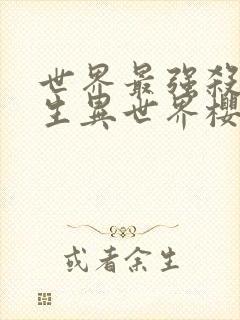 世界最强殺
生異世界櫻
或者余生